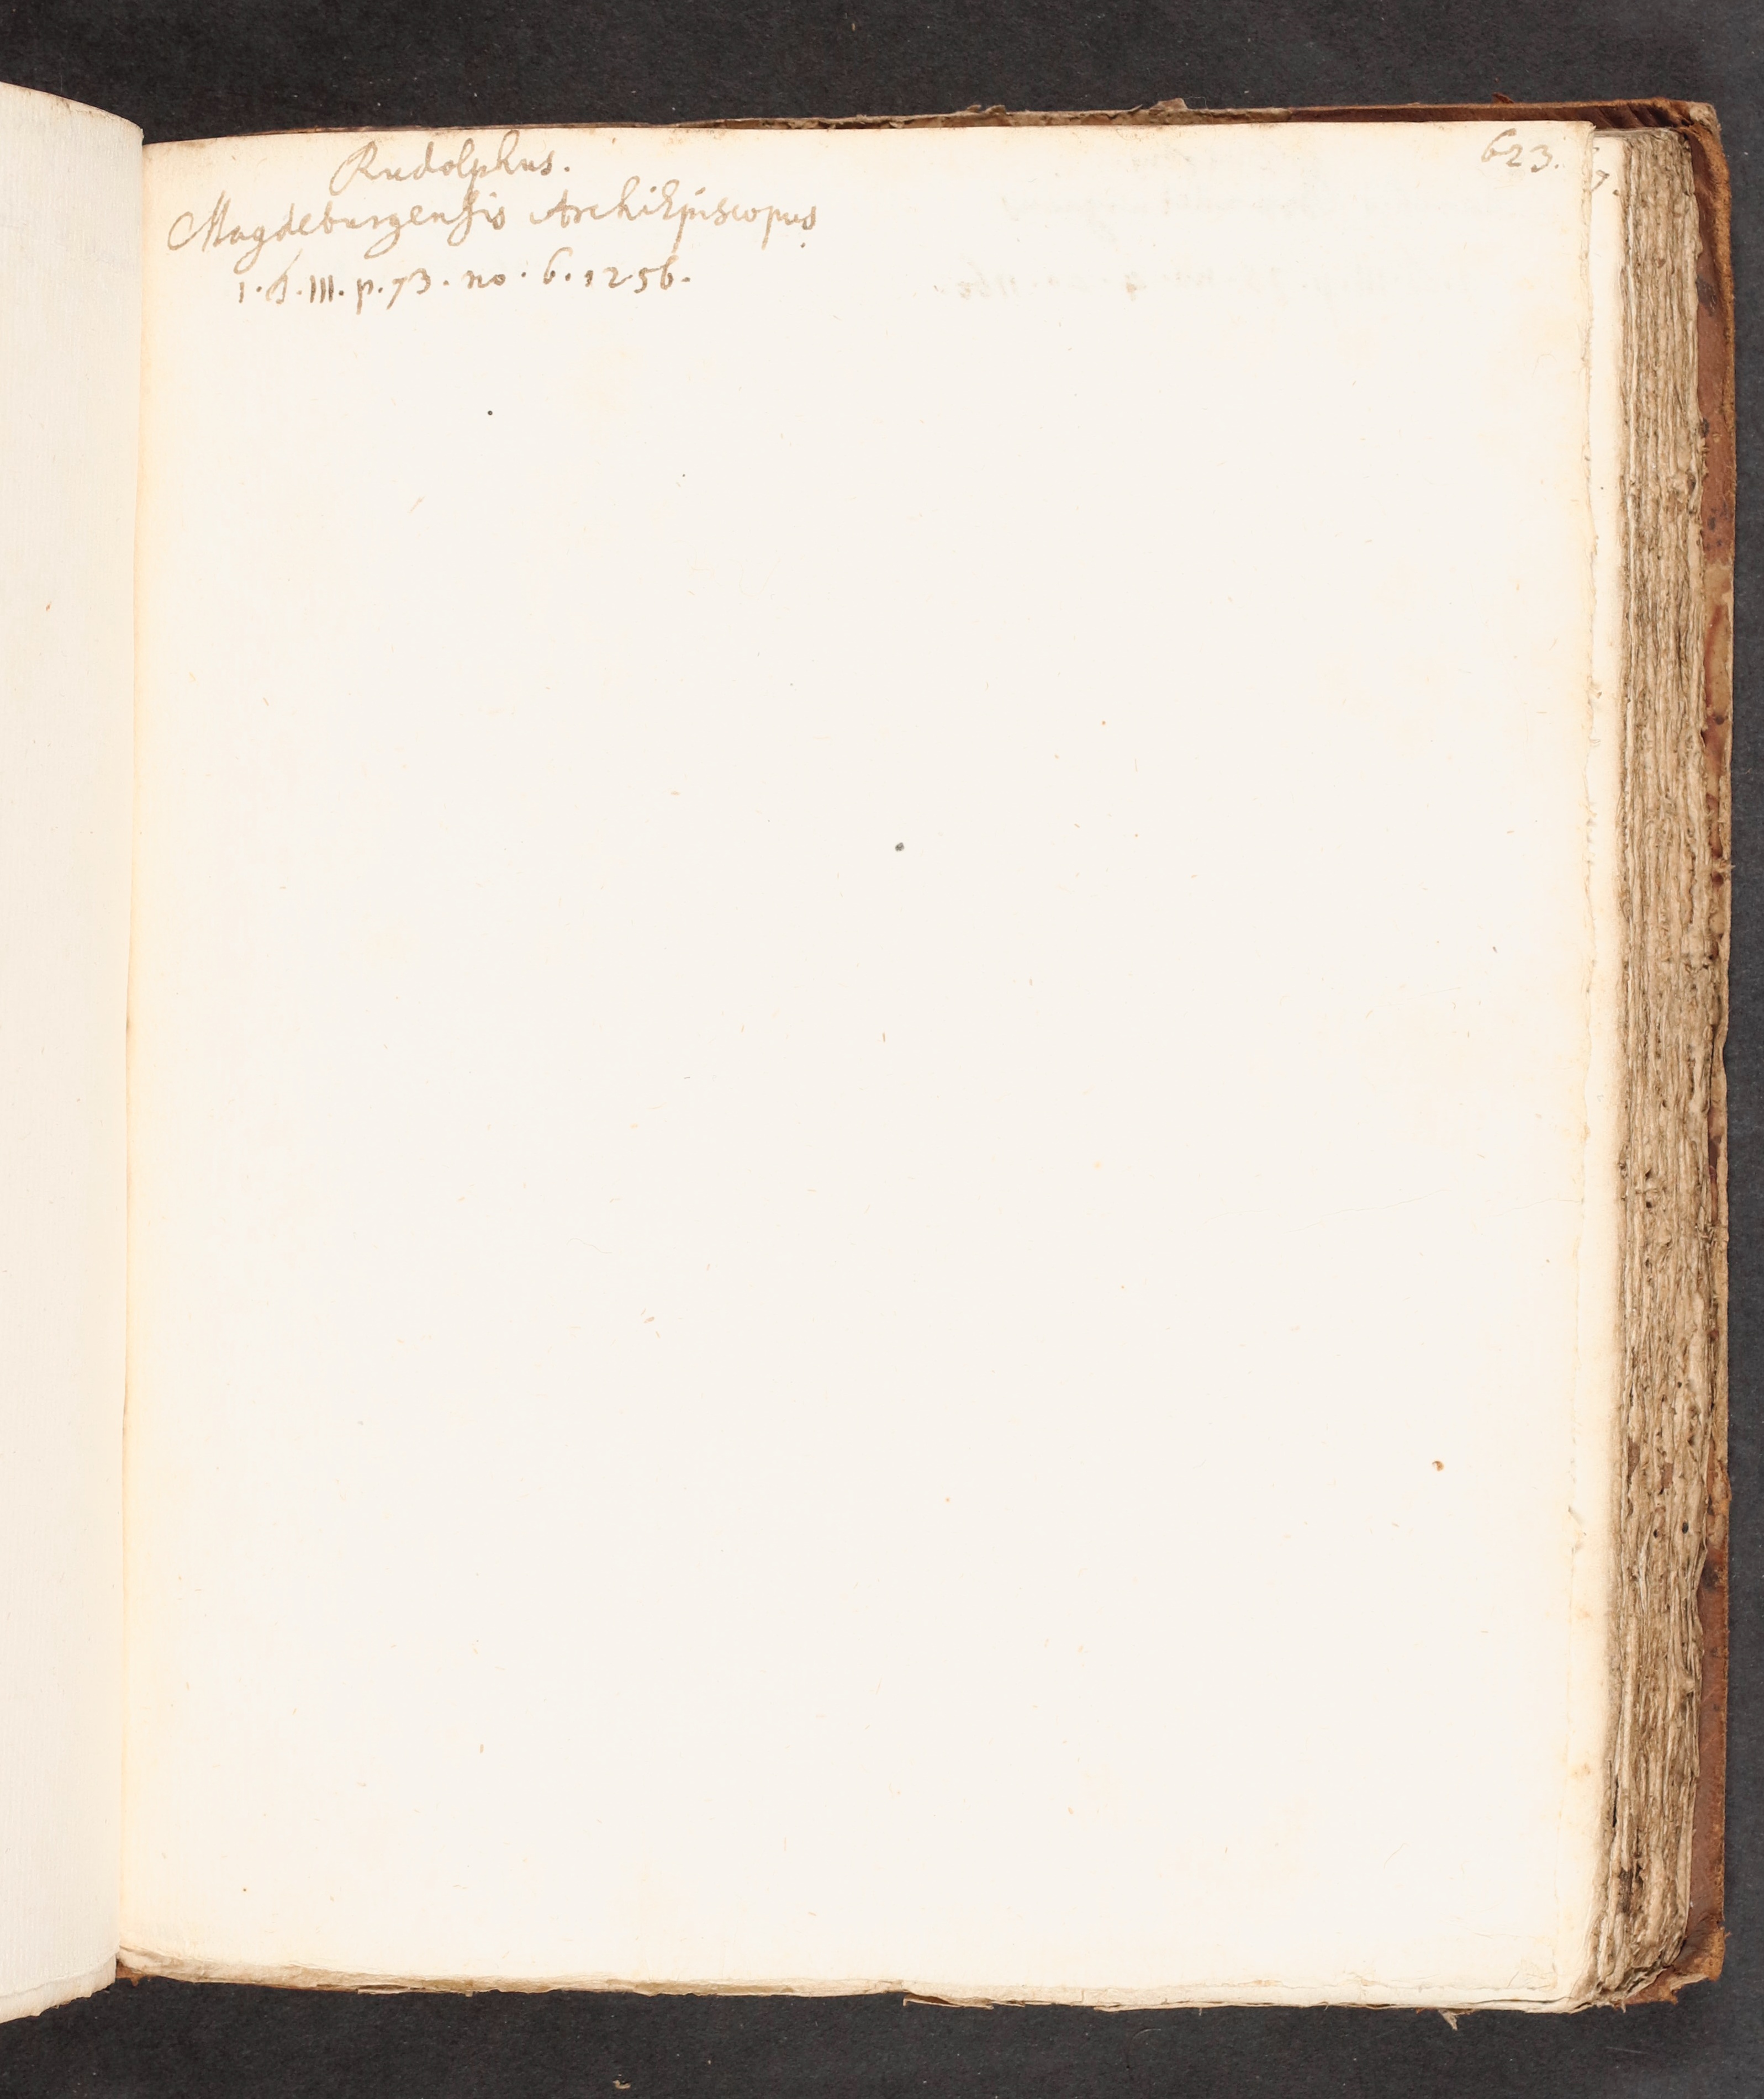 623.
Rudolphus.
Magdeburgensis ArchiEpiscopus
1. d. III. p. 73. no. 6. 1256.
7.